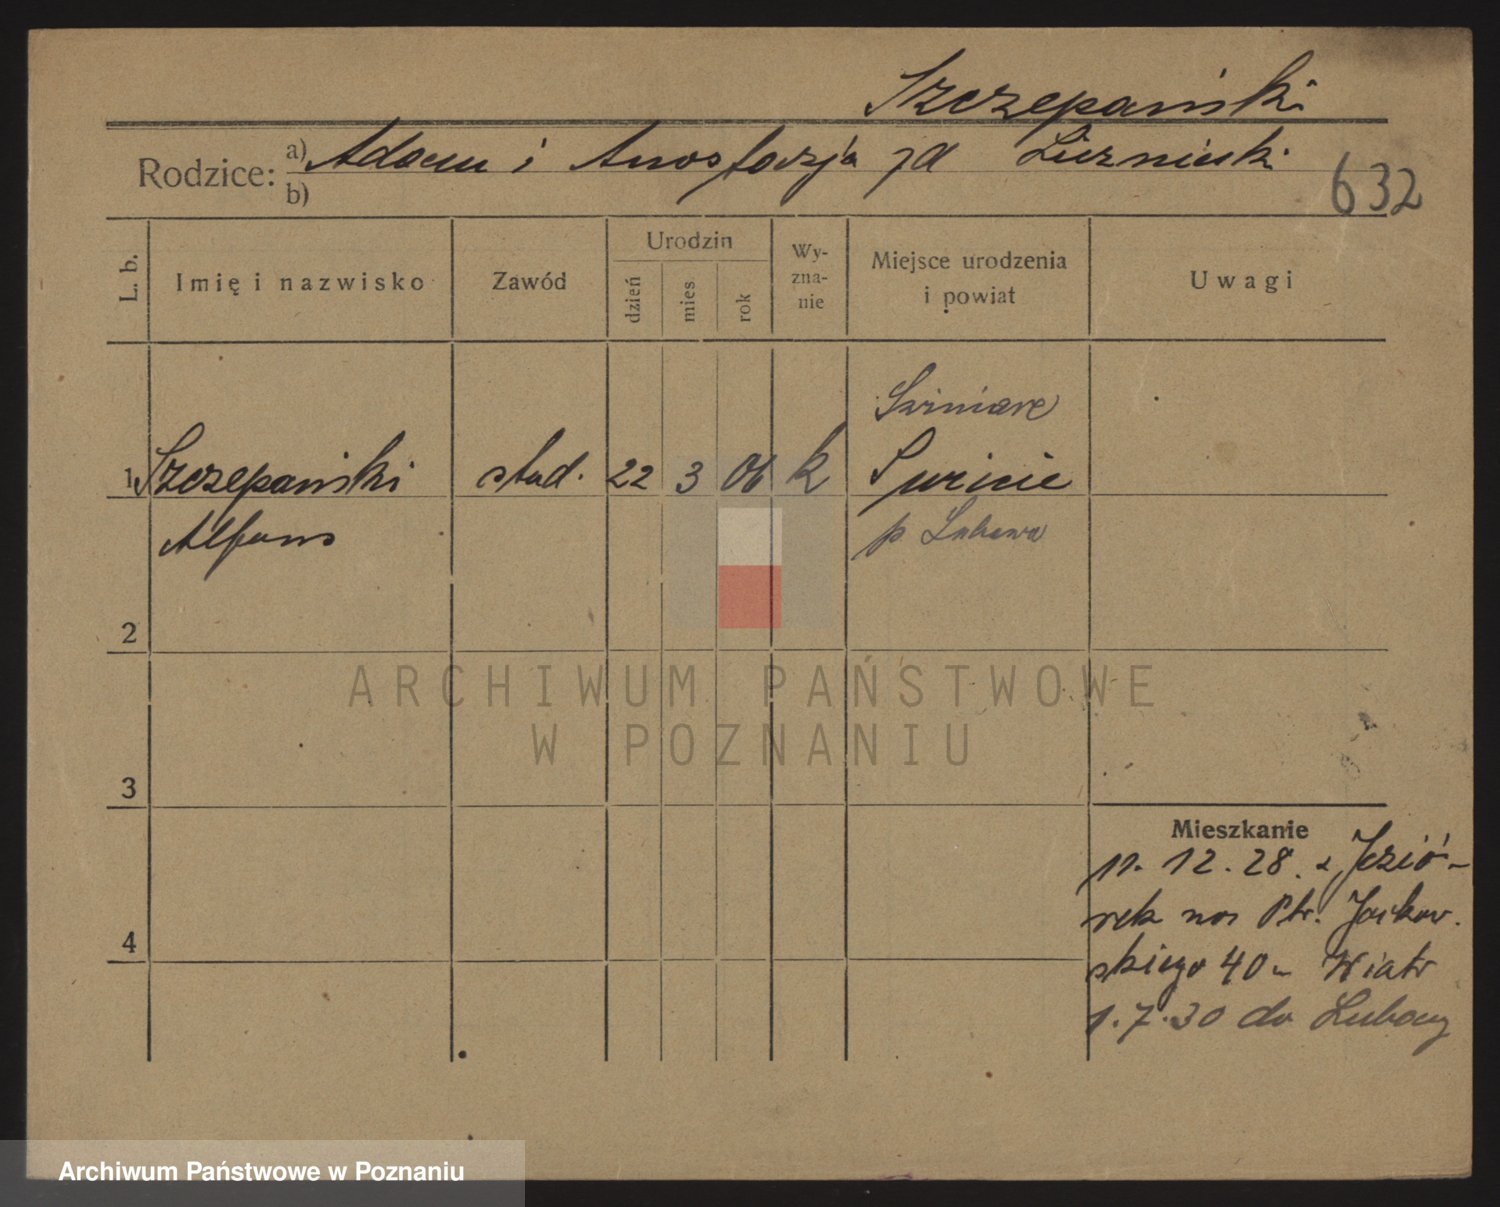 Szczepański
Rodzice: a) Adam i Anastazja zd
b)
632
L. b.
Imię i nazwisko
Zawód
Urodzin
dzień
mies
rok
Wy-
zna-
nie
Miejsce urodzenia
i powiat
Uwagi
Świniarc
1 Szczepański stud. 22 3 06 k
Alfons p. Lubawa
2
3
4
ARCHIWUM PAŃSTWOWE
W POZNANIU
Mieszkanie
11. 12. 28. z Jeziór-
rek na Ptr. Jackow.
skiego 40 Wiatr
1. 7. 30 do Lubawy
Archiwum Państwowe w Poznaniu